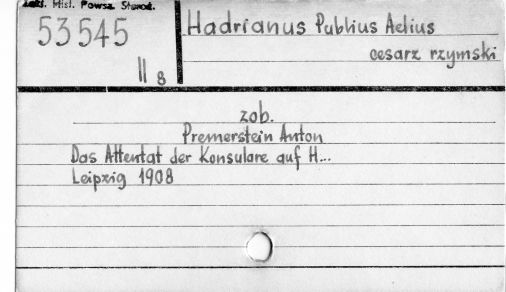 Zakł. Hist. Powsz. Staroż.
53545
II 8
Hadrianus Publius Aelius
cesarz rzymski
zob.
Premerstein Anton
Das Attentat der Konsulare auf H...
Leipzig 1908